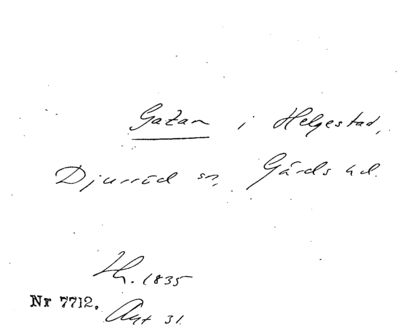 Gatan i Helgestad,
Djurröd sn, Gärds hd.
Lh. 1835
Nr 7712. Akt 31.